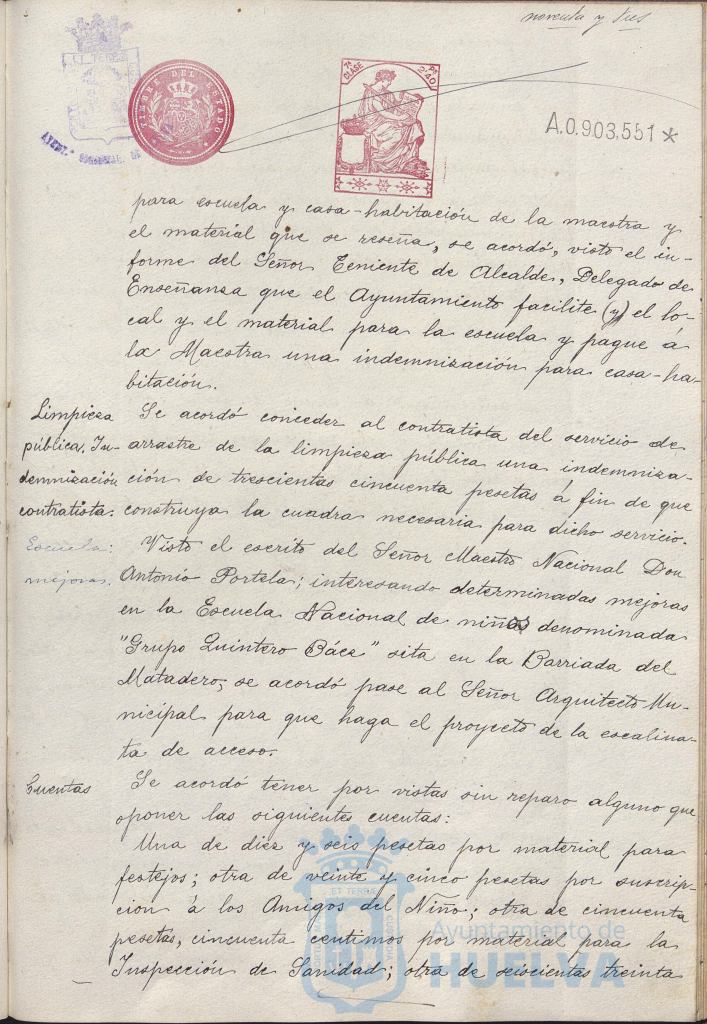 noventa y tres
TIMBRE DEL ESTADO
7ª CLASE
Pts 2'40
A.0.903,551*
para escuela y casa-habitación de la maestra y
el material que se reseña, se acordó, visto el in-
forme del Señor Teniente de Alcalde, Delegado de
Enseñanza que el Ayuntamiento facilite (y) el lo-
cal y el material para la escuela y pague á
la Maestra una indemnización para casa-ha-
bitación.
Limpieza
pública. In-
demnización
contratista.
Se acordó conceder al contratista del servicio de
arrastre de la limpieza pública una indemniza-
ción de trescientas cincuenta pesetas á fin de que
construya la cuadra necesaria para dicho servicio.
Escuela:
mejoras.
Visto el escrito del Señor Maestro Nacional Don
Antonio Portela; interesando determinadas mejoras
en la Escuela Nacional de niños denominada
"Grupo Quintero Báez" sita en la Barriada del
Matadero, se acordó pase al Señor Arquitecto Mu-
nicipal para que haga el proyecto de la escalina-
ta de acceso.
Cuentas
Se acordó tener por vistas sin reparo alguno que
oponer las siguientes cuentas:
Una de diez y seis pesetas por material para
festejos; otra de veinte y cinco pesetas por suscrip-
cion á los Amigos del Niño; otra de cincuenta
pesetas, cincuenta centimos por material para la
Inspección de Sanidad; otra de seiscientas treinta
Ayuntamiento de
HUELVA